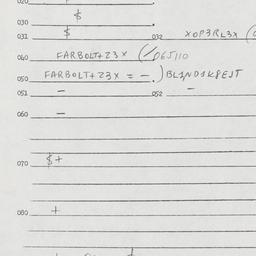 020
$
030
031 $ 032 XOP3RL3X (
040 FARBOLT+Z3X (/065/10
050 FARBOLT+Z3X = -.) BLIND1KPEST
051 - 052 -
060 -
070 $+
080 +